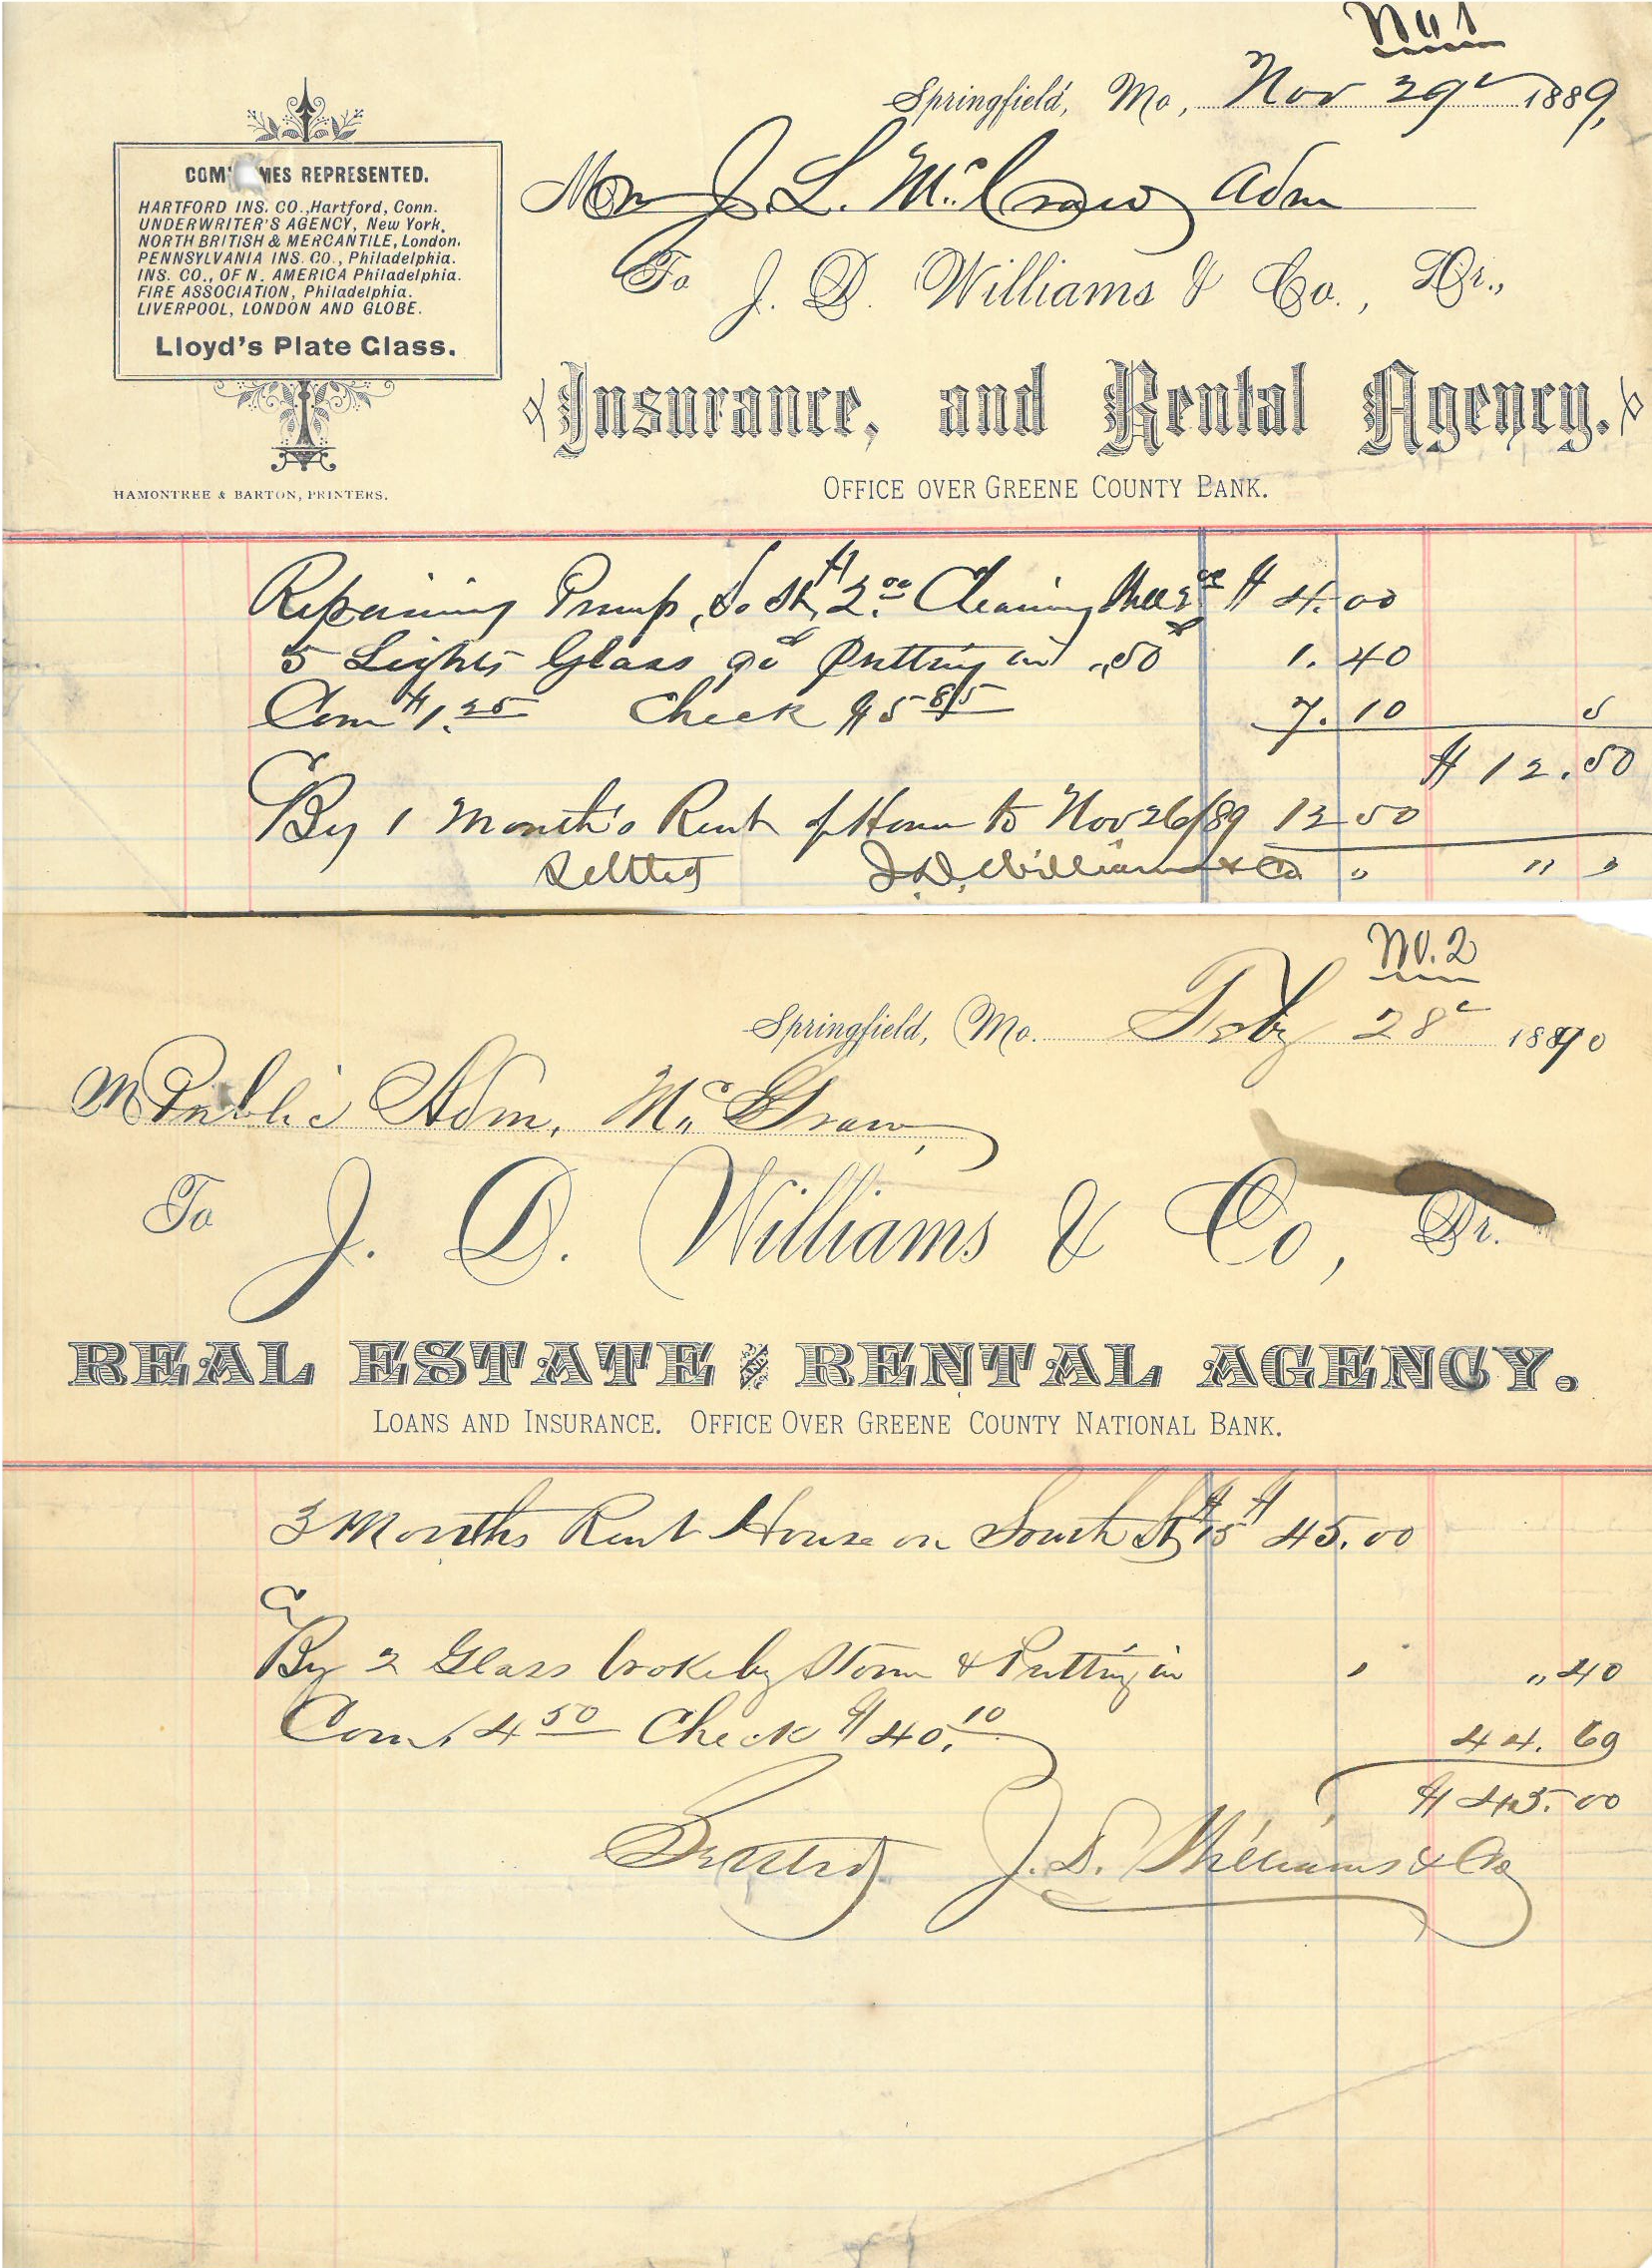 No 1
Springfield, Mo, Nov 29th 1889,
COM NIES REPRESENTED.
HARTFORD INS. CO., Hartford, Conn.
UNDERWRITER'S AGENCY, New York.
NORTH BRITISH & MERCANTILE, London.
PENNSYLVANIA INS. CO., Philadelphia.
INS. CO., OF N. AMERICA Philadelphia.
FIRE ASSOCIATION, Philadelphia.
LIVERPOOL, LONDON AND GLOBE.
Lloyd's Plate Glass.
HAMONTREE & BARTON, PRINTERS.
J. L. McCraw Adm
To J. D. Williams & Co., Dr.,
Insurance, and Rental Agency.
OFFICE OVER GREENE COUNTY BANK.
Repairing Pump, So St, $2.00 Cleaning $ 4.00
5 Lights Glass 90 Putting in .50 1.40
Com $1.25 Check $5.85 7.10
$12.50
Cr
By 1 Month's Rent of House to Nov 26/89 12 50
Settled J. D. Williams & Co
No. 2
Springfield, Mo. Feby 28th 1890
M Public Adm. McGraw
To J. D. Williams & Co, Dr.
REAL ESTATE AND RENTAL AGENCY.
LOANS AND INSURANCE. OFFICE OVER GREENE COUNTY NATIONAL BANK.
3 Months Rent House on South St $15 $45.00
Cr
By 2 Glass broke by Storm & Putting in " 40
Com 4.50 Check $40.10 44.60
$45.00
Settled J. D. Williams & Co